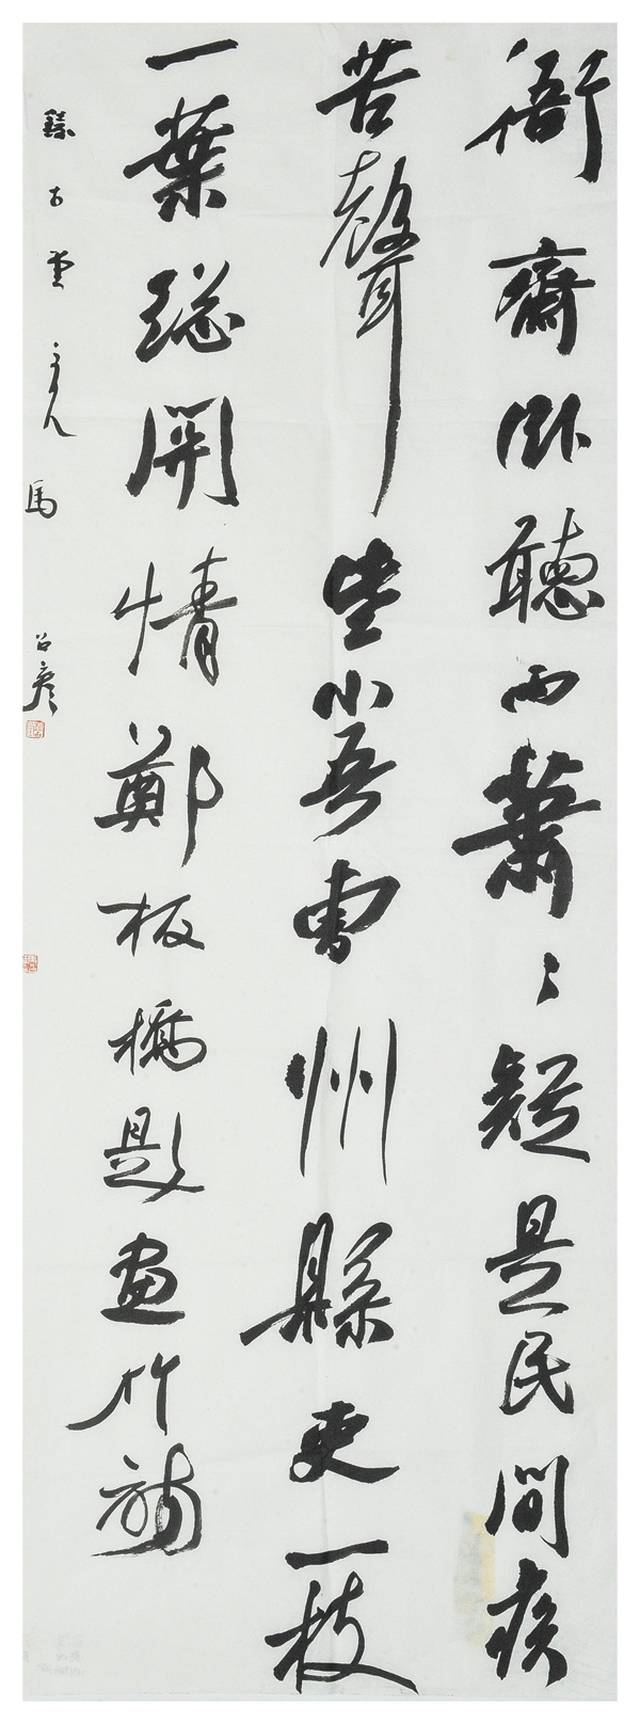 衙齋卧聽雨蕭〻疑是民間疾
苦聲些小吾曹州縣吏一枝
一葉總関情鄭板橋題畫竹詩
古堂主人馬